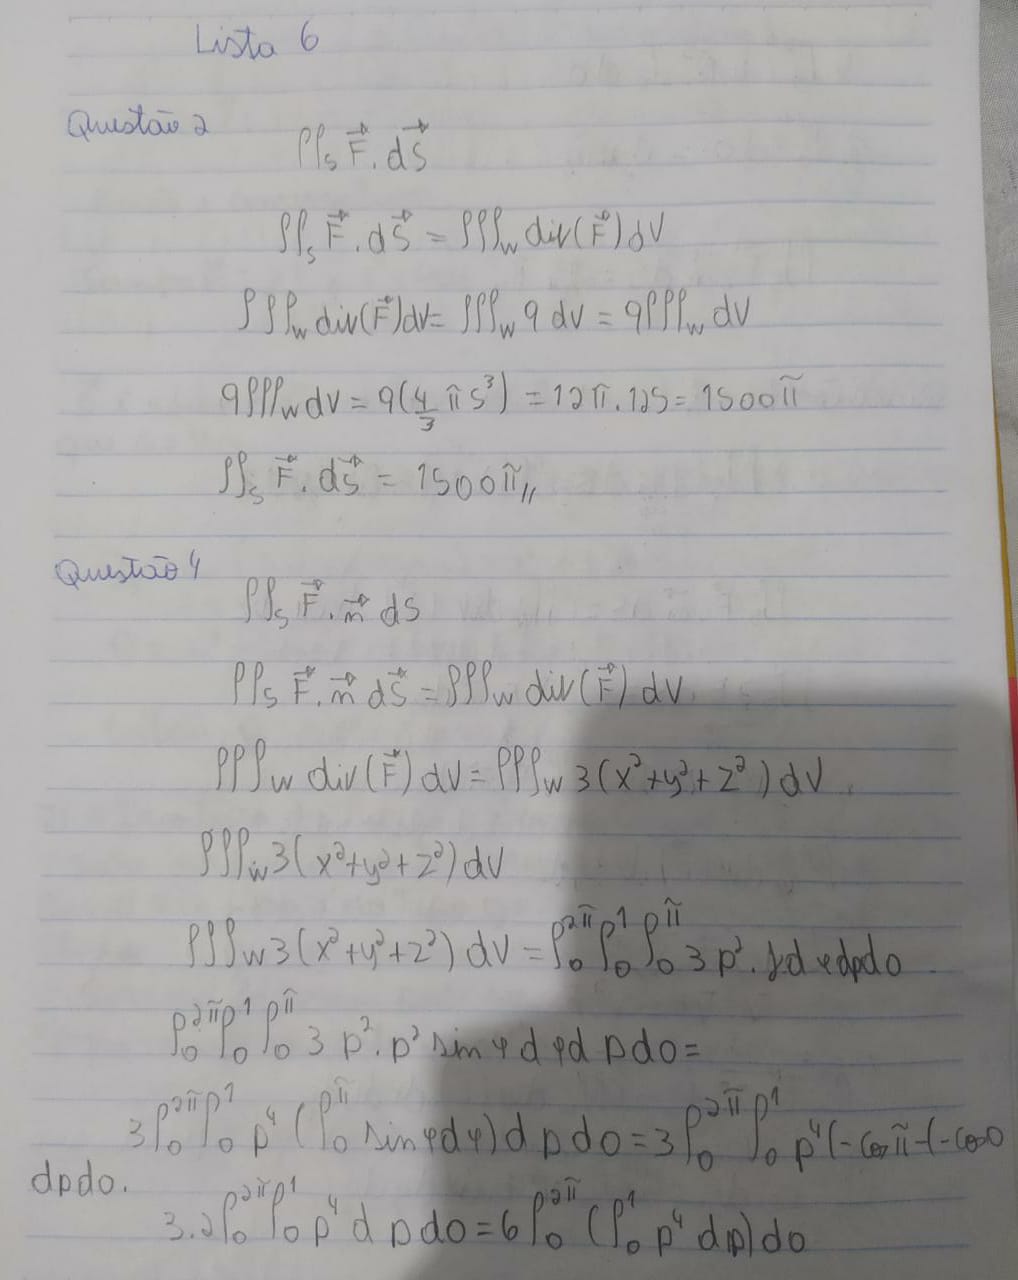 Lista 6
Questão 2
∫∫ₛ F⃗. dS⃗
∫∫ₛ F⃗. dS⃗ = ∫∫∫w div(F⃗) dV
∫∫∫w div(F⃗)dV = ∫∫∫w 9 dV = 9∫∫∫w dV
9∫∫∫w dV = 9(4/3 π 5³) = 12π.125 = 1500π
∫∫ₛ F⃗. dS⃗ = 1500π//
Questão 4
∫∫ₛ F⃗. n⃗ dS
∫∫ₛ F⃗. n⃗ dS⃗ = ∫∫∫w div(F⃗) dV
∫∫∫w div(F⃗) dV = ∫∫∫w 3(x²+y²+z²) dV
∫∫∫w 3(x²+y²+z²) dV
∫∫∫w 3(x²+y²+z²) dV = ∫₀^2π ∫₀^1 ∫₀^π 3ρ². Jdφdρdθ
∫₀^2π ∫₀^1 ∫₀^π 3 ρ². ρ² sinφ dφ dρ dθ =
3∫₀^2π ∫₀^1 ρ⁴ (∫₀^π sinφdφ) dρ dθ = 3∫₀^2π ∫₀^1 ρ⁴(-cosπ-(-cos0
dρdθ.
3.2∫₀^2π ∫₀^1 ρ⁴ dρ dθ = 6∫₀^2π (∫₀^1 ρ⁴ dρ) dθ